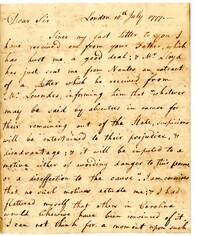 Dear Sir
London 18th July 1777.
Since my last letter to you I
have received one from your Father, which
has hurt me, a good deal; & Mr. Loyd
has just sent me from Nantes, an extract
of a Letter which he received from
Mr. Lowndes, informing him that "whatever
may be said by absentees in excuse for
their remaining out of the State, suspicions
will be entertained to their prejudice, &
disadvantage; & it will be imputed to a
motive either of avoiding danger to their persons
or a disaffection to the cause." I am conscious
that no such motives actuate me; & I had
flattered myself that others in Carolina
would likewise have been convinced of it.
I can not think for a moment upon such